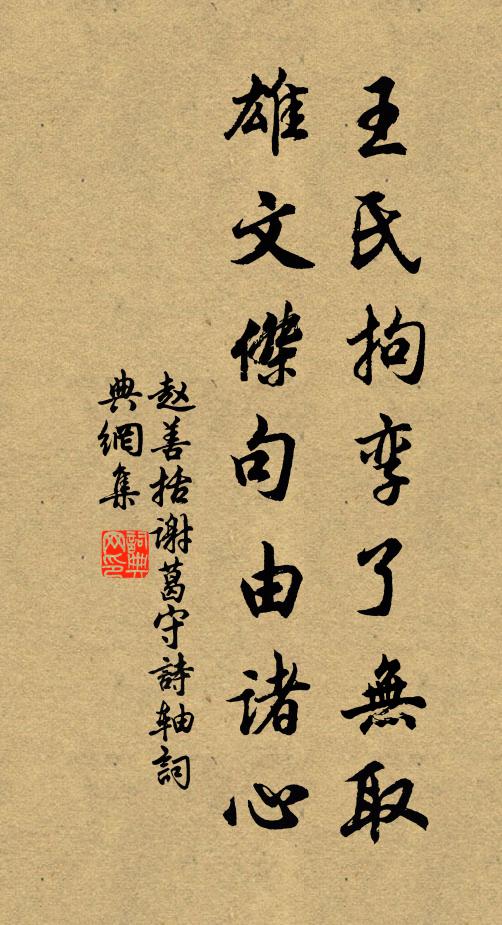 王氏拘孪了無取
雄文傑句由诸心
赵善括谢葛守詩轴詞
典網集
詞典網印